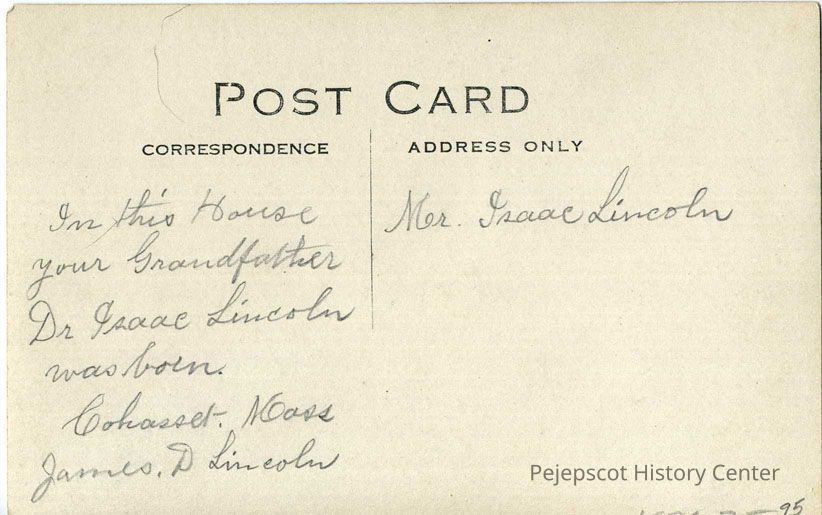 POST CARD
CORRESPONDENCE
ADDRESS ONLY
In this House
your Grandfather
Dr Isaac Lincoln
was born.
Cohasset. Mass
James. D Lincoln
Mr. Isaac Lincoln
Pejepscot History Center
95